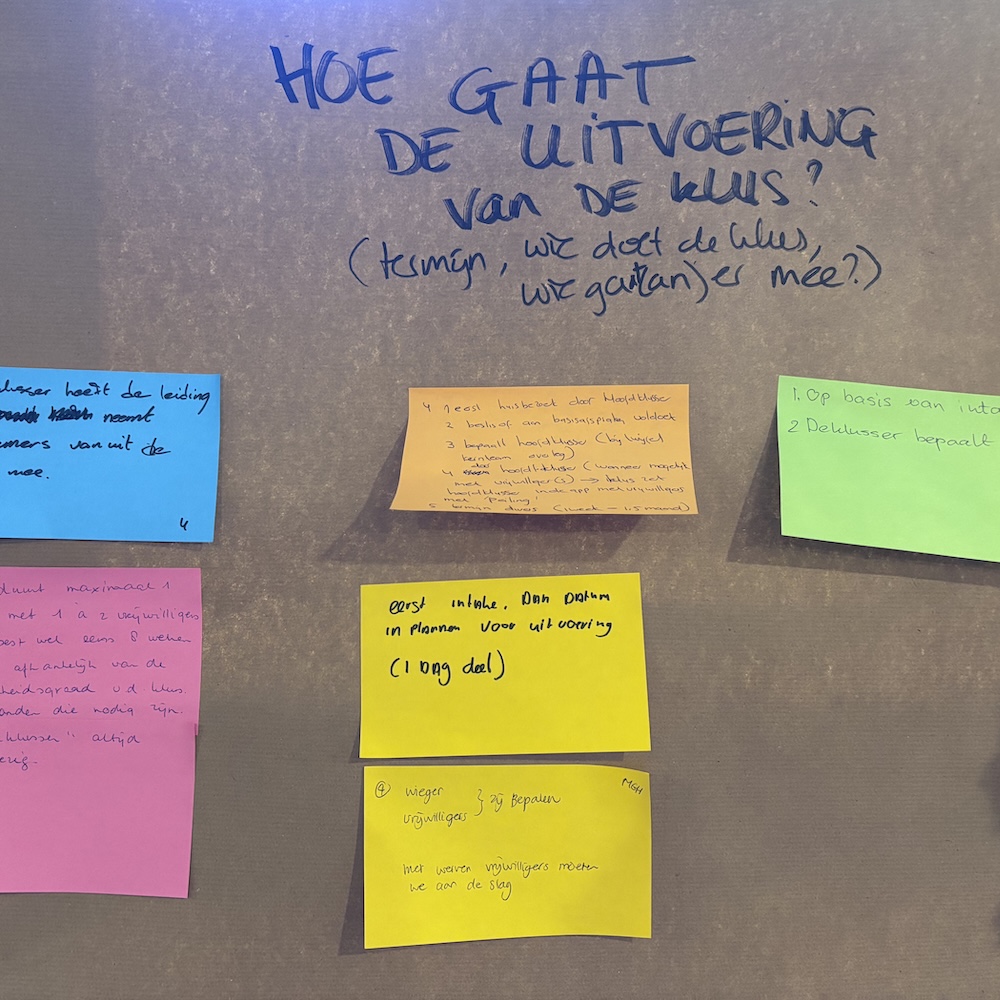 HOE GAAT
DE UITVOERING
van DE KLUS?
(termijn, wie doet de klus,
wie gaat(an) er mee?)
lusser heeft de leiding
neemt
emers vanuit de
mee.
4
4 1 eerst huisbezoek door Hoofdklusser
2 beslist of aan basisafspraken voldoet
3 bepaalt hoofdklusser (bij twijfel
kernteam overleg)
4 door hoofdklusser (wanneer mogelijk
met vrijwilliger(s) → klus zet
hoofdklusser in de app met vrijwilligers
met 'Peiling'
5 termijn divers (1 week - 1,5 maand)
1. Op basis van inta
2 De klusser bepaalt
duurt maximaal 1
met 1 à 2 vrijwilligers
est wel eens 8 weken
afhankelijk van de
heidsgraad v.d. klus.
anden die nodig zijn.
klusser" altijd
ezig.
eerst intake. Dan Datum
in plannen voor uitvoering
(1 DAg deel)
4 Wieger
vrijwilligers } zij Bepalen
MGH
Met werven vrijwilligers moeten
we aan de slag